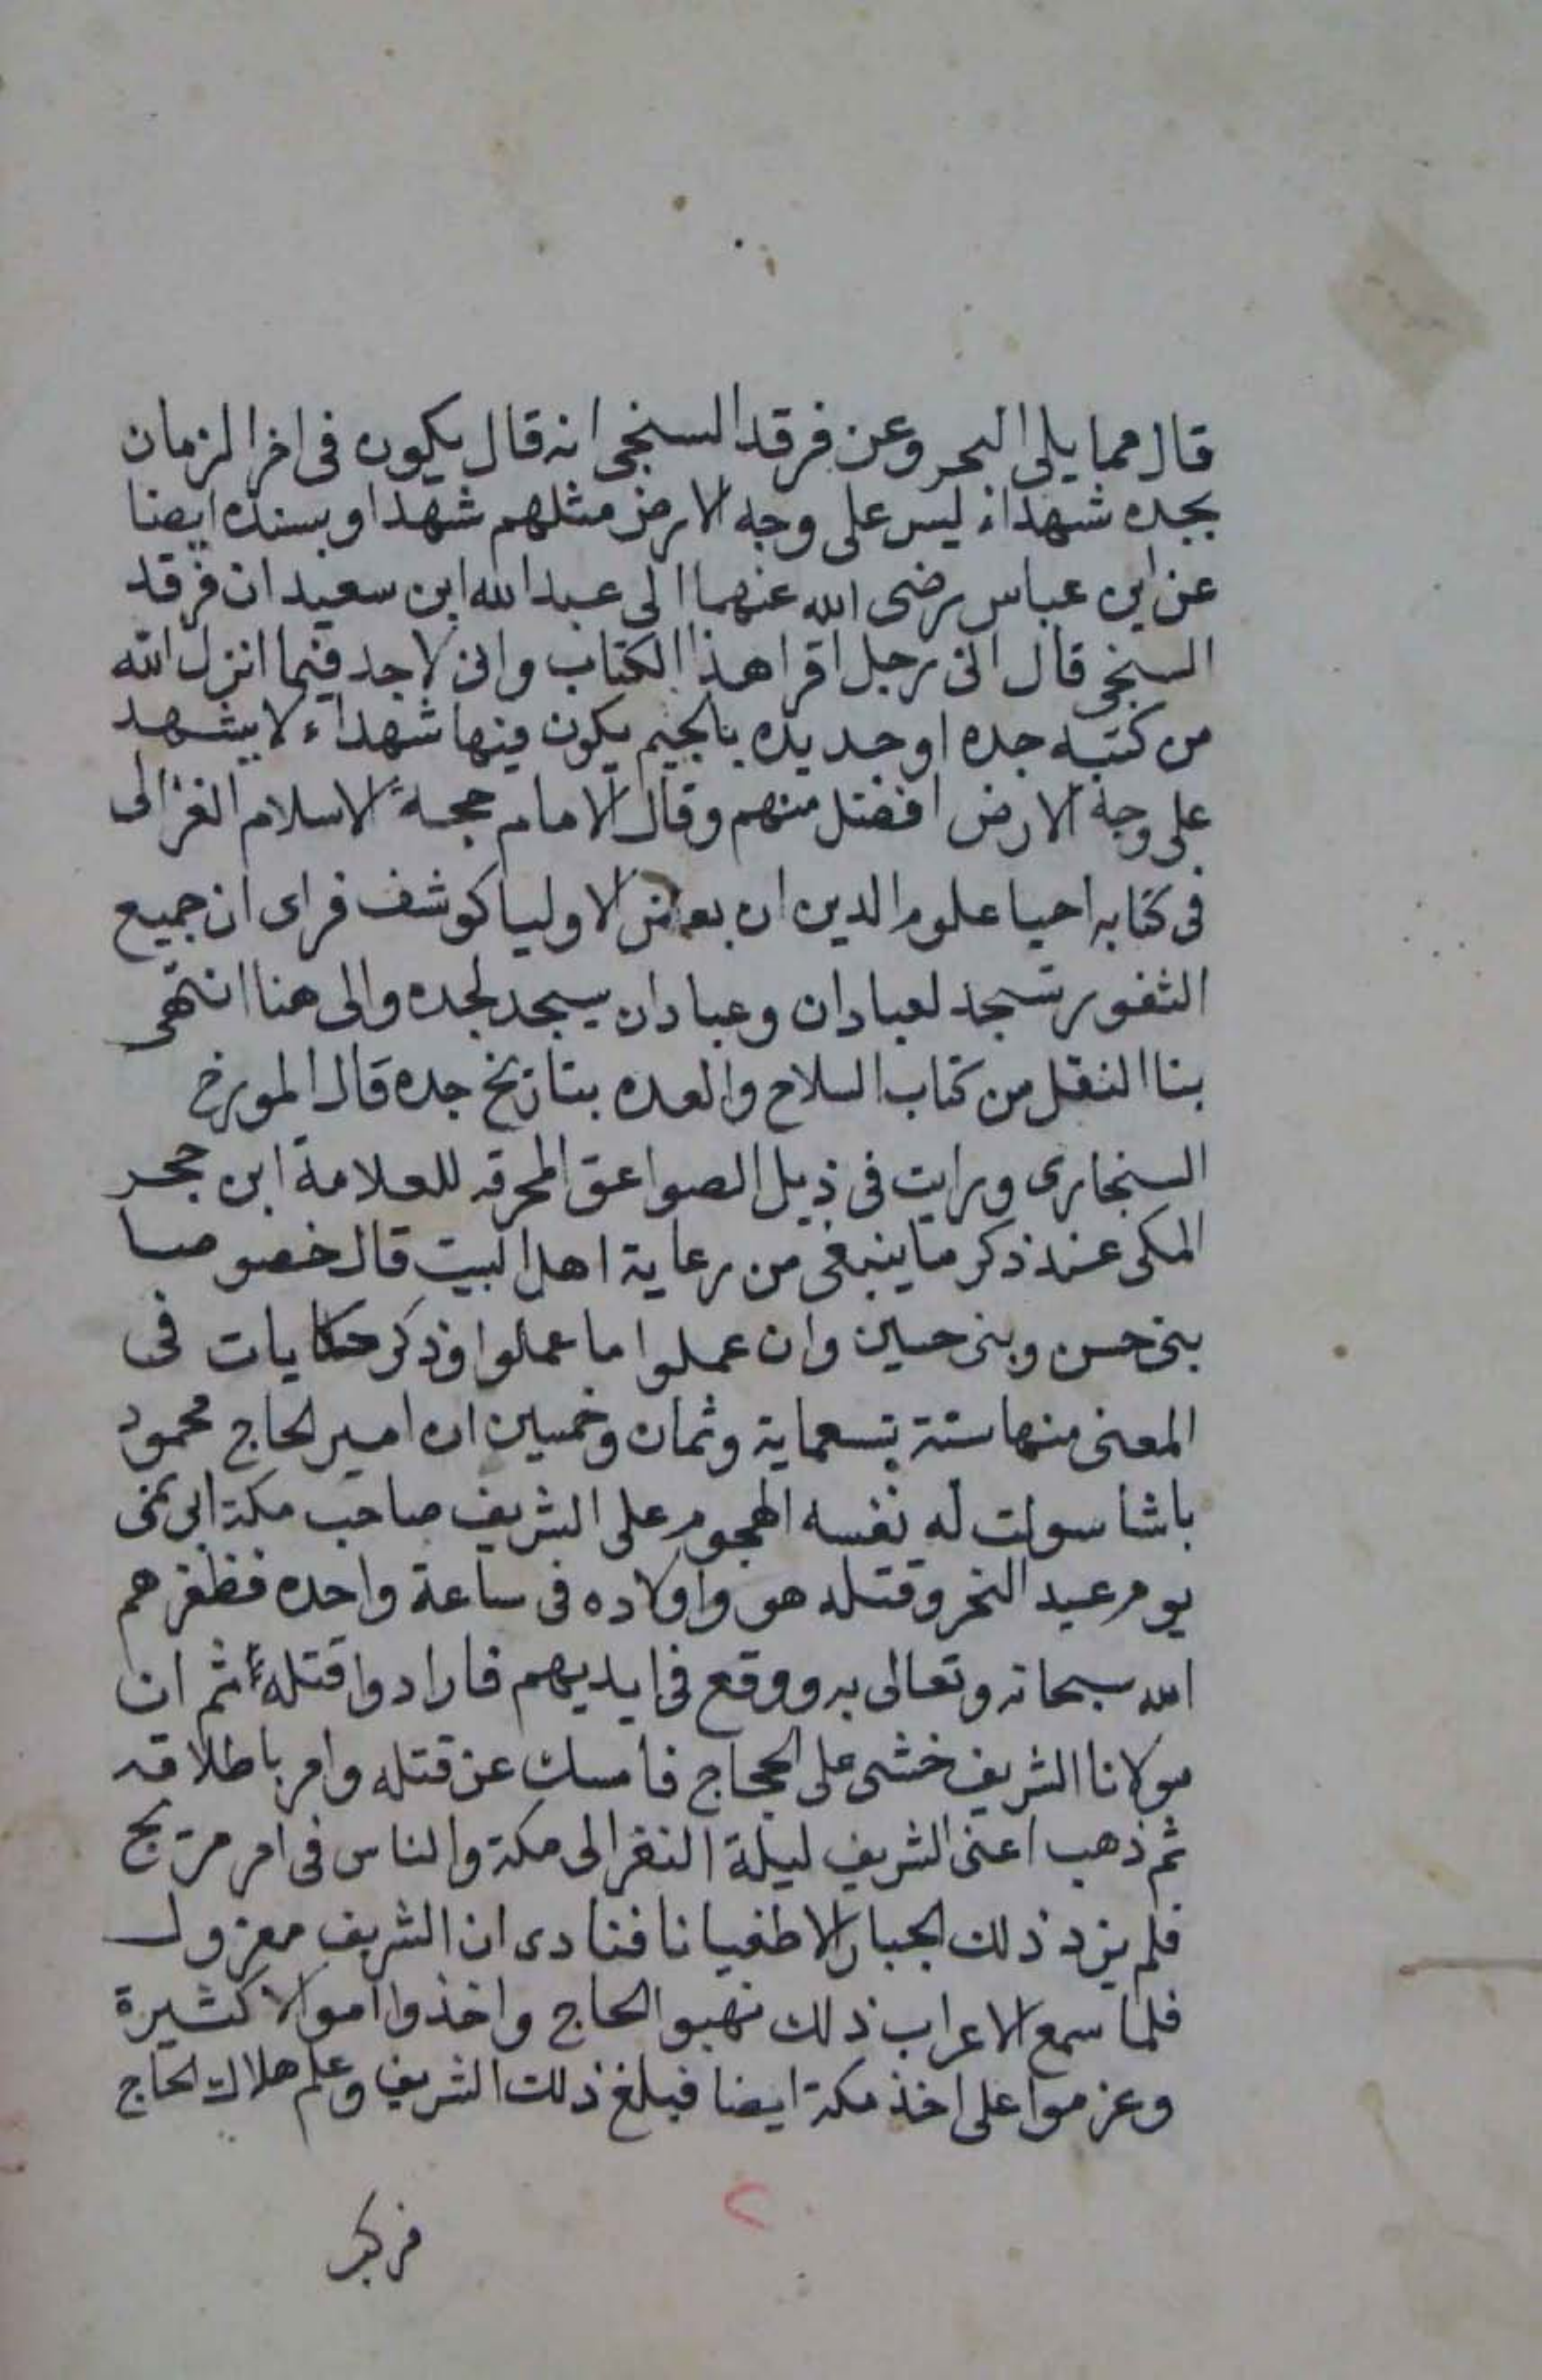 قال مما يلى البحر وعن فرقد السنجى انه قال يكون فى اخر الزمان
بجده شهداء ليس على وجه الارض مثلهم شهدا وبسنده ايضا
عن ابن عباس رضى الله عنهما الى عبد الله ابن سعيد ان فرقد
السنجى قال انى رجل اقرا هذا الكتاب وانى لاجد فيما انزل الله
من كتبه جده او جديده بالجيم يكون فيها شهداء لا يشهد
على وجه الارض افضل منهم وقال الامام حجة الاسلام الغزالى
فى كتابه احيا علوم الدين ان بعض الاوليا كوشف فراى ان جميع
الثغور تسجد لعبادان وعبادان يسجد لجده والى هنا انتهى
بنا النقل من كتاب السلاح والعده بتاريخ جده قال المورخ
السنجارى ورايت فى ذيل الصواعق المحرقه للعلامة ابن حجر
المكى عند ذكر ما ينبغى من رعاية اهل البيت قال خصوصا
بنى حسن وبنى حسين وان عملوا ما عملوا وذكر حكايات فى
المعنى منها سنة تسعماية وثمان وخمسين ان امير الحاج محمود
باشا سولت له نفسه الهجوم على الشريف صاحب مكة ابى نمى
يوم عيد النحر وقتله هو واولاده فى ساعة واحده فظفرهم
الله سبحانه وتعالى به ووقع فى ايديهم فارادوا قتله ثم ان
مولانا الشريف خشى على الحجاج فامسك عن قتله وامر باطلاقه
ثم ذهب اعنى الشريف ليلة النفر الى مكة والناس فى امر مريج
فلم يزد ذلك الجبار الا طغيانا فنادى ان الشريف معزول
فلما سمع الاعراب ذلك نهبوا الحاج واخذوا اموالا كثيرة
وعزموا على اخذ مكة ايضا فبلغ ذلك الشريف وعلم هلاك الحاج
فركب
٢